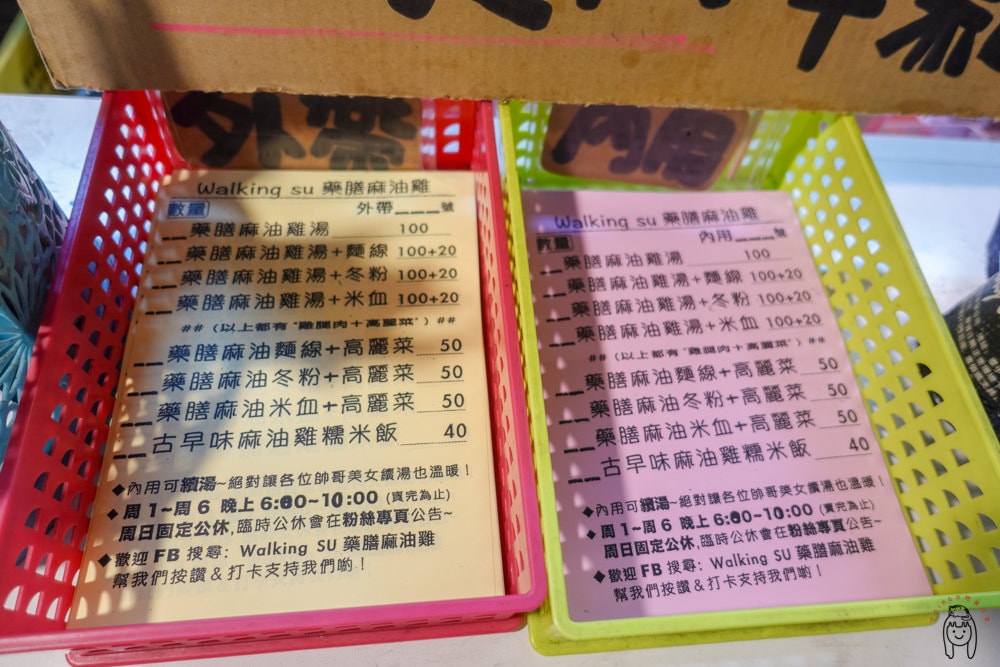 外帶
內用
Walking su 藥膳麻油雞
數量 外帶____號
__藥膳麻油雞湯 100
__藥膳麻油雞湯+麵線 100+20
__藥膳麻油雞湯+冬粉 100+20
__藥膳麻油雞湯+米血 100+20
##(以上都有"雞腿肉+高麗菜")##
__藥膳麻油麵線+高麗菜 50
__藥膳麻油冬粉+高麗菜 50
__藥膳麻油米血+高麗菜 50
__古早味麻油雞糯米飯 40
◆內用可續湯~絕對讓各位帥哥美女續湯也溫暖!
◆周1~周6 晚上6:00~10:00(賣完為止)
周日固定公休,臨時公休會在粉絲專頁公告~
◆歡迎FB搜尋: Walking SU 藥膳麻油雞
幫我們按讚&打卡支持我們喲!
Walking su 藥膳麻油雞
數量 內用____號
__藥膳麻油雞湯 100
__藥膳麻油雞湯+麵線 100+20
__藥膳麻油雞湯+冬粉 100+20
__藥膳麻油雞湯+米血 100+20
##(以上都有"雞腿肉+高麗菜")##
__藥膳麻油麵線+高麗菜 50
__藥膳麻油冬粉+高麗菜 50
__藥膳麻油米血+高麗菜 50
__古早味麻油雞糯米飯 40
◆內用可續湯~絕對讓各位帥哥美女續湯也溫暖!
◆周1~周6 晚上6:00~10:00(賣完為止)
周日固定公休,臨時公休會在粉絲專頁公告~
◆歡迎FB搜尋: Walking SU 藥膳麻油雞
幫我們按讚&打卡支持我們喲!